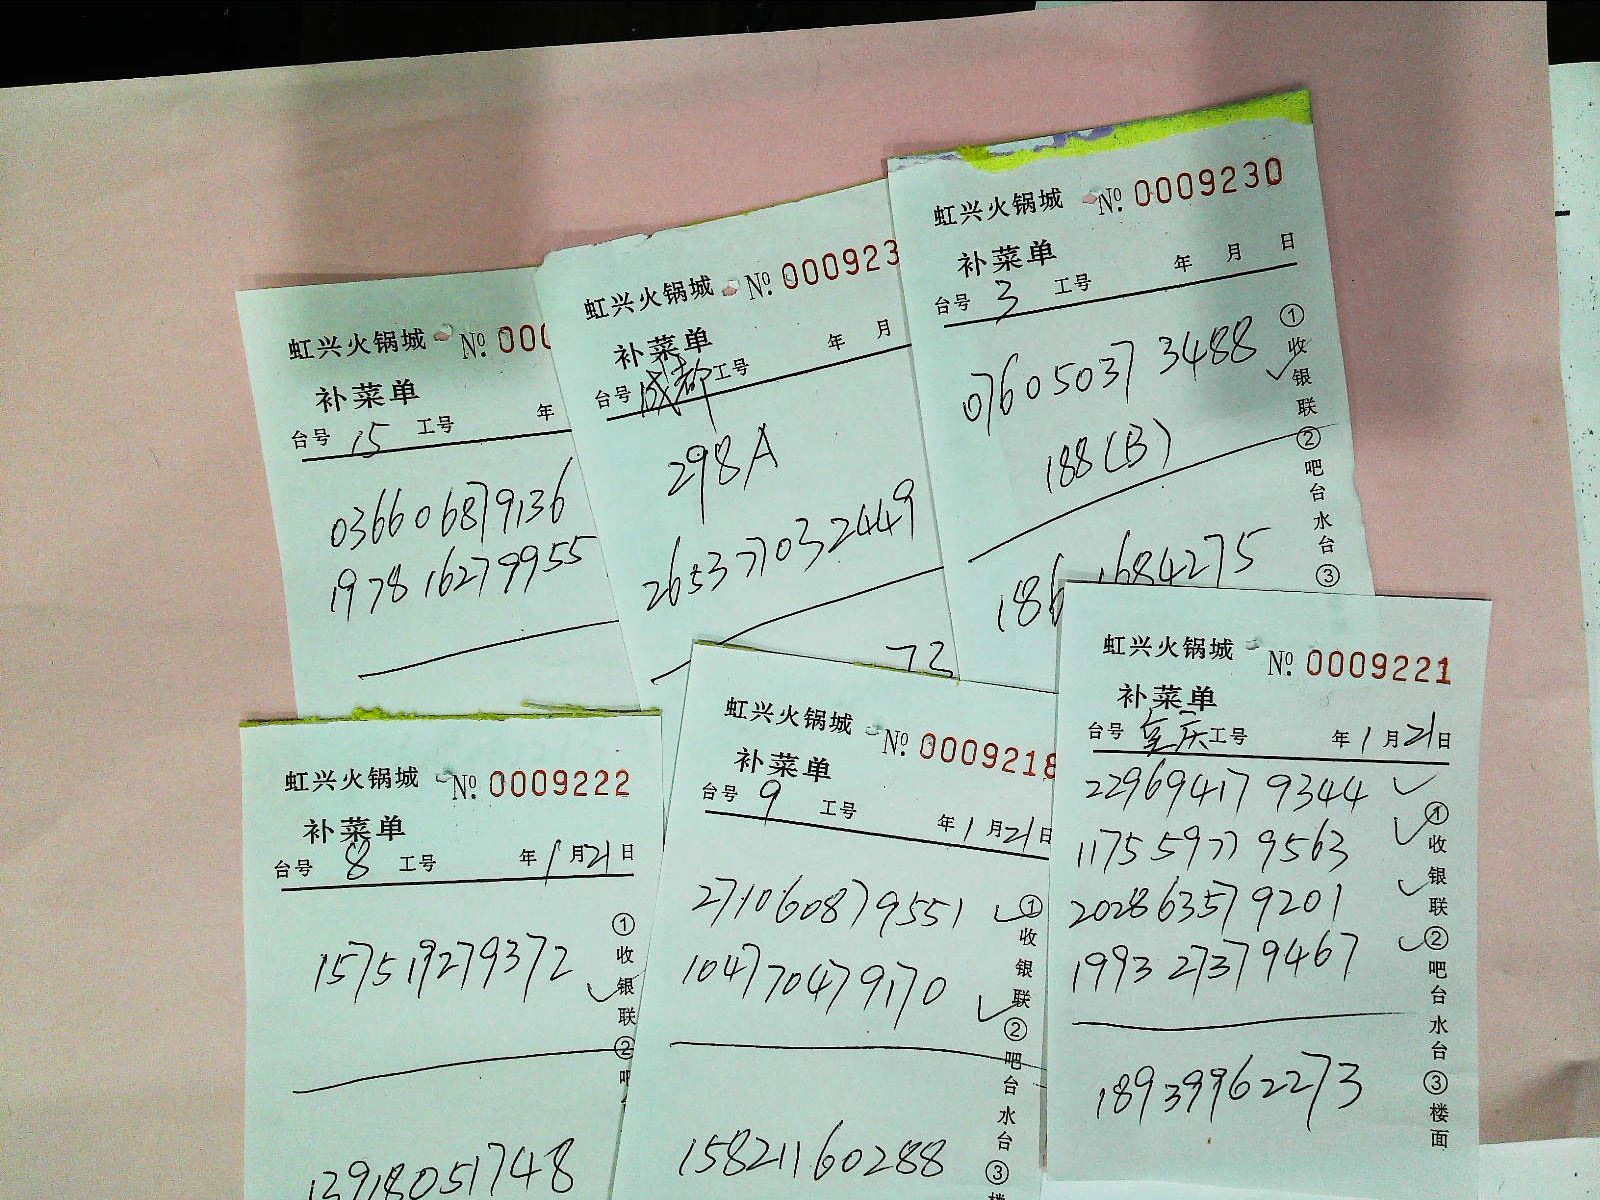 虹兴火锅城 №. 000
补菜单
台号 15 工号 年
036606879136
197816279955
虹兴火锅城 №. 000923
补菜单
台号 成都 工号 年 月
298A
265377032449
73
虹兴火锅城 №. 0009230
补菜单
台号 3 工号 年 月 日
076050373488
188(B)
186 1684275
①收银联②吧台水台③
虹兴火锅城 №. 0009222
补菜单
台号 8 工号 年 1 月 21 日
157519279372
13918051748
①收银联②吧
虹兴火锅城 №. 0009218
补菜单
台号 9 工号 年 1 月 21 日
271060879551
104770479170
15821160288
①收银联②吧台水台③楼
虹兴火锅城 №. 0009221
补菜单
台号 重庆 工号 年 1 月 21 日
229694179344
117559779563
202863579201
199327379467
18939962273
①收银联②吧台水台③楼面